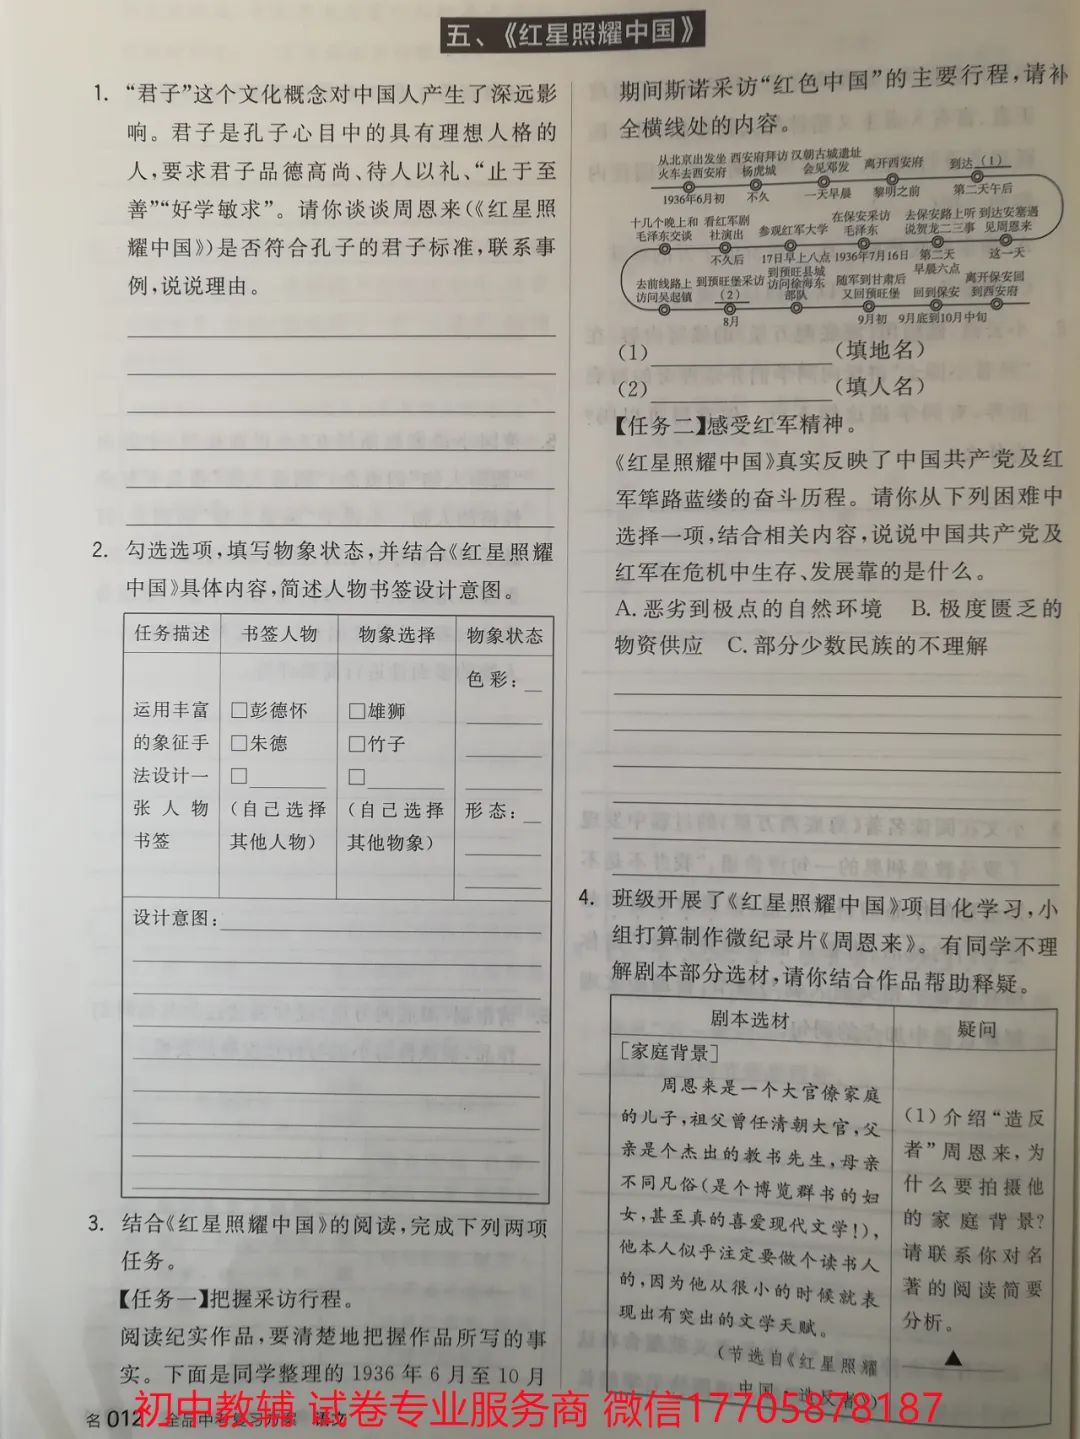 五、《红星照耀中国》
1. “君子”这个文化概念对中国人产生了深远影
响。君子是孔子心目中的具有理想人格的
人,要求君子品德高尚、待人以礼、“止于至
善”“好学敏求”。请你谈谈周恩来(《红星照
耀中国》)是否符合孔子的君子标准,联系事
例,说说理由。
2. 勾选选项,填写物象状态,并结合《红星照耀
中国》具体内容,简述人物书签设计意图。
任务描述 书签人物 物象选择 物象状态
运用丰富
的象征手
法设计一
张人物
书签
□彭德怀
□朱德
□
(自己选择
其他人物)
□雄狮
□竹子
□
(自己选择
其他物象)
色彩:
形态:
设计意图:
3. 结合《红星照耀中国》的阅读,完成下列两项
任务。
【任务一】把握采访行程。
阅读纪实作品,要清楚地把握作品所写的事
实。下面是同学整理的1936年6月至10月
名012 全品中考复习方案 语文
期间斯诺采访“红色中国”的主要行程,请补
全横线处的内容。
从北京出发坐 西安府拜访 汉朝古城遗址 离开西安府 到达 (1)
火车去西安府 杨虎城 会见邓发
1936年6月初 不久 一天早晨 黎明之前 第二天午后
十几个晚上和 看红军剧 参观红军大学 在保安采访 去保安路上听 到达安塞遇
毛泽东交谈 社演出 毛泽东 说贺龙二三事 见周恩来
不久后 17日早上八点 1936年7月16日 第二天 这一天
早晨六点
去前线路上 到预旺堡采访 到预旺县城 随军到甘肃后 回到保安 离开保安回
访问吴起镇 (2) 访问徐海东 又回预旺堡 到西安府
部队
8月 9月初 9月底到10月中旬
(1) (填地名)
(2) (填人名)
【任务二】感受红军精神。
《红星照耀中国》真实反映了中国共产党及红
军筚路蓝缕的奋斗历程。请你从下列困难中
选择一项,结合相关内容,说说中国共产党及
红军在危机中生存、发展靠的是什么。
A. 恶劣到极点的自然环境 B. 极度匮乏的
物资供应 C. 部分少数民族的不理解
4. 班级开展了《红星照耀中国》项目化学习,小
组打算制作微纪录片《周恩来》。有同学不理
解剧本部分选材,请你结合作品帮助释疑。
剧本选材 疑问
[家庭背景]
周恩来是一个大官僚家庭
的儿子,祖父曾任清朝大官,父
亲是个杰出的教书先生,母亲
不同凡俗(是个博览群书的妇
女,甚至真的喜爱现代文学!),
他本人似乎注定要做个读书人
的,因为他从很小的时候就表
现出有突出的文学天赋。
(节选自《红星照耀
中国·造反者》)
(1)介绍“造反
者”周恩来,为
什么要拍摄他
的家庭背景?
请联系你对名
著的阅读简要
分析。
▲
初中教辅 试卷专业服务商 微信17705878187